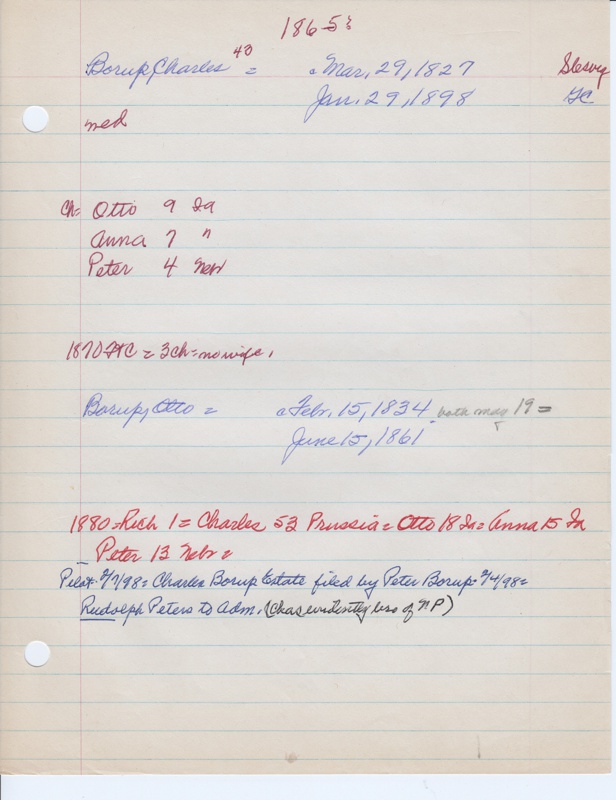 186-5
Borup, Charles 43 = Mar. 29, 1827 Slesvig
Jan. 29, 1898 GC
med
Ch= Otto 9 Ia
Anna 7 "
Peter 4 Nebr
1870 = 3 ch = no wife.
Borup, Otto = Febr. 15, 1834 both may 19 =
June 15, 1861
1880 = Rich 1 = Charles 53 Prussia = Otto 18 Ia = Anna 15 Ia
Peter 13 Nebr =
Pilot 2/7/98 = Charles Borup Estate filed by Peter Borup = 2/4/98 =
Rudolph Peters to adm. (Chas evidently bro of NP)